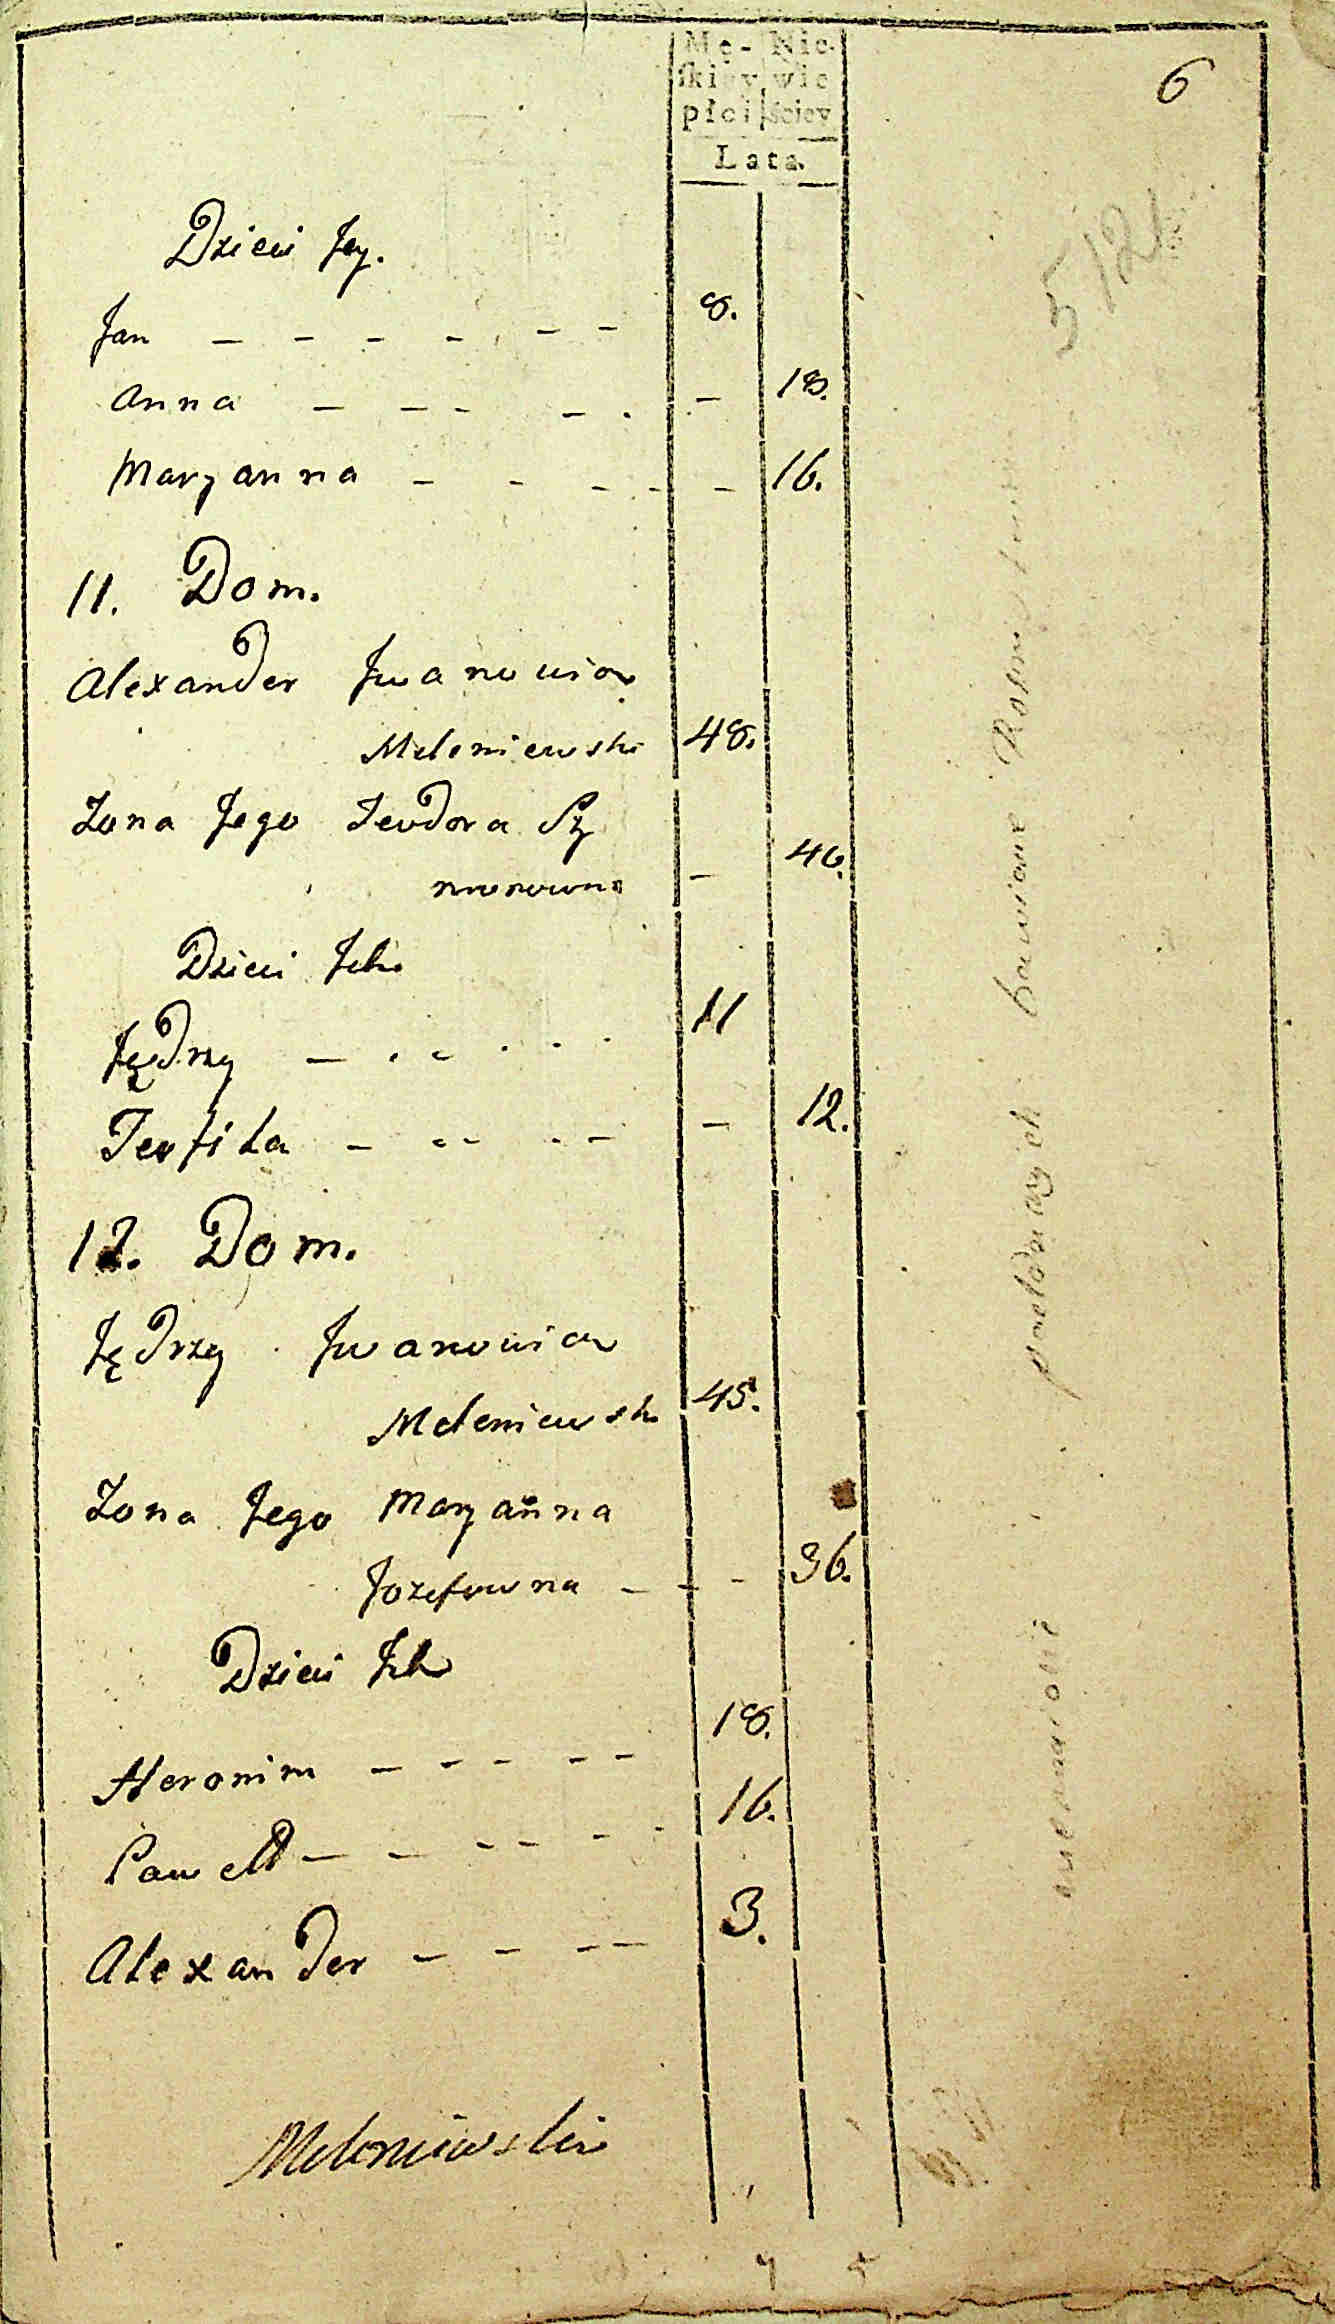 6
Mę- Nie-
ſkiey wie
płci ściey
Lata.
5121
Dzieci Jey.
Jan - - - - - - 8.
Anna - - - - - - 18.
Maryanna - - - - - 16.
11. Dom.
Alexander Jwanowicz
Meleniewski 48.
Zona Jego Teodora Sy
monowna - 46.
Dzieci Jch
Jędrzy - - - - - - 11
Teofila - - - - - - 12.
12. Dom.
Jędrzy Jwanowicz
Meleniewski 45.
Zona Jego Maryanna
Jozefowna - - - 36.
Dzieci Jch
Heronim - - - - - 18.
Pawełł - - - - - - 16.
Alexander - - - - 3.
Meleniewski